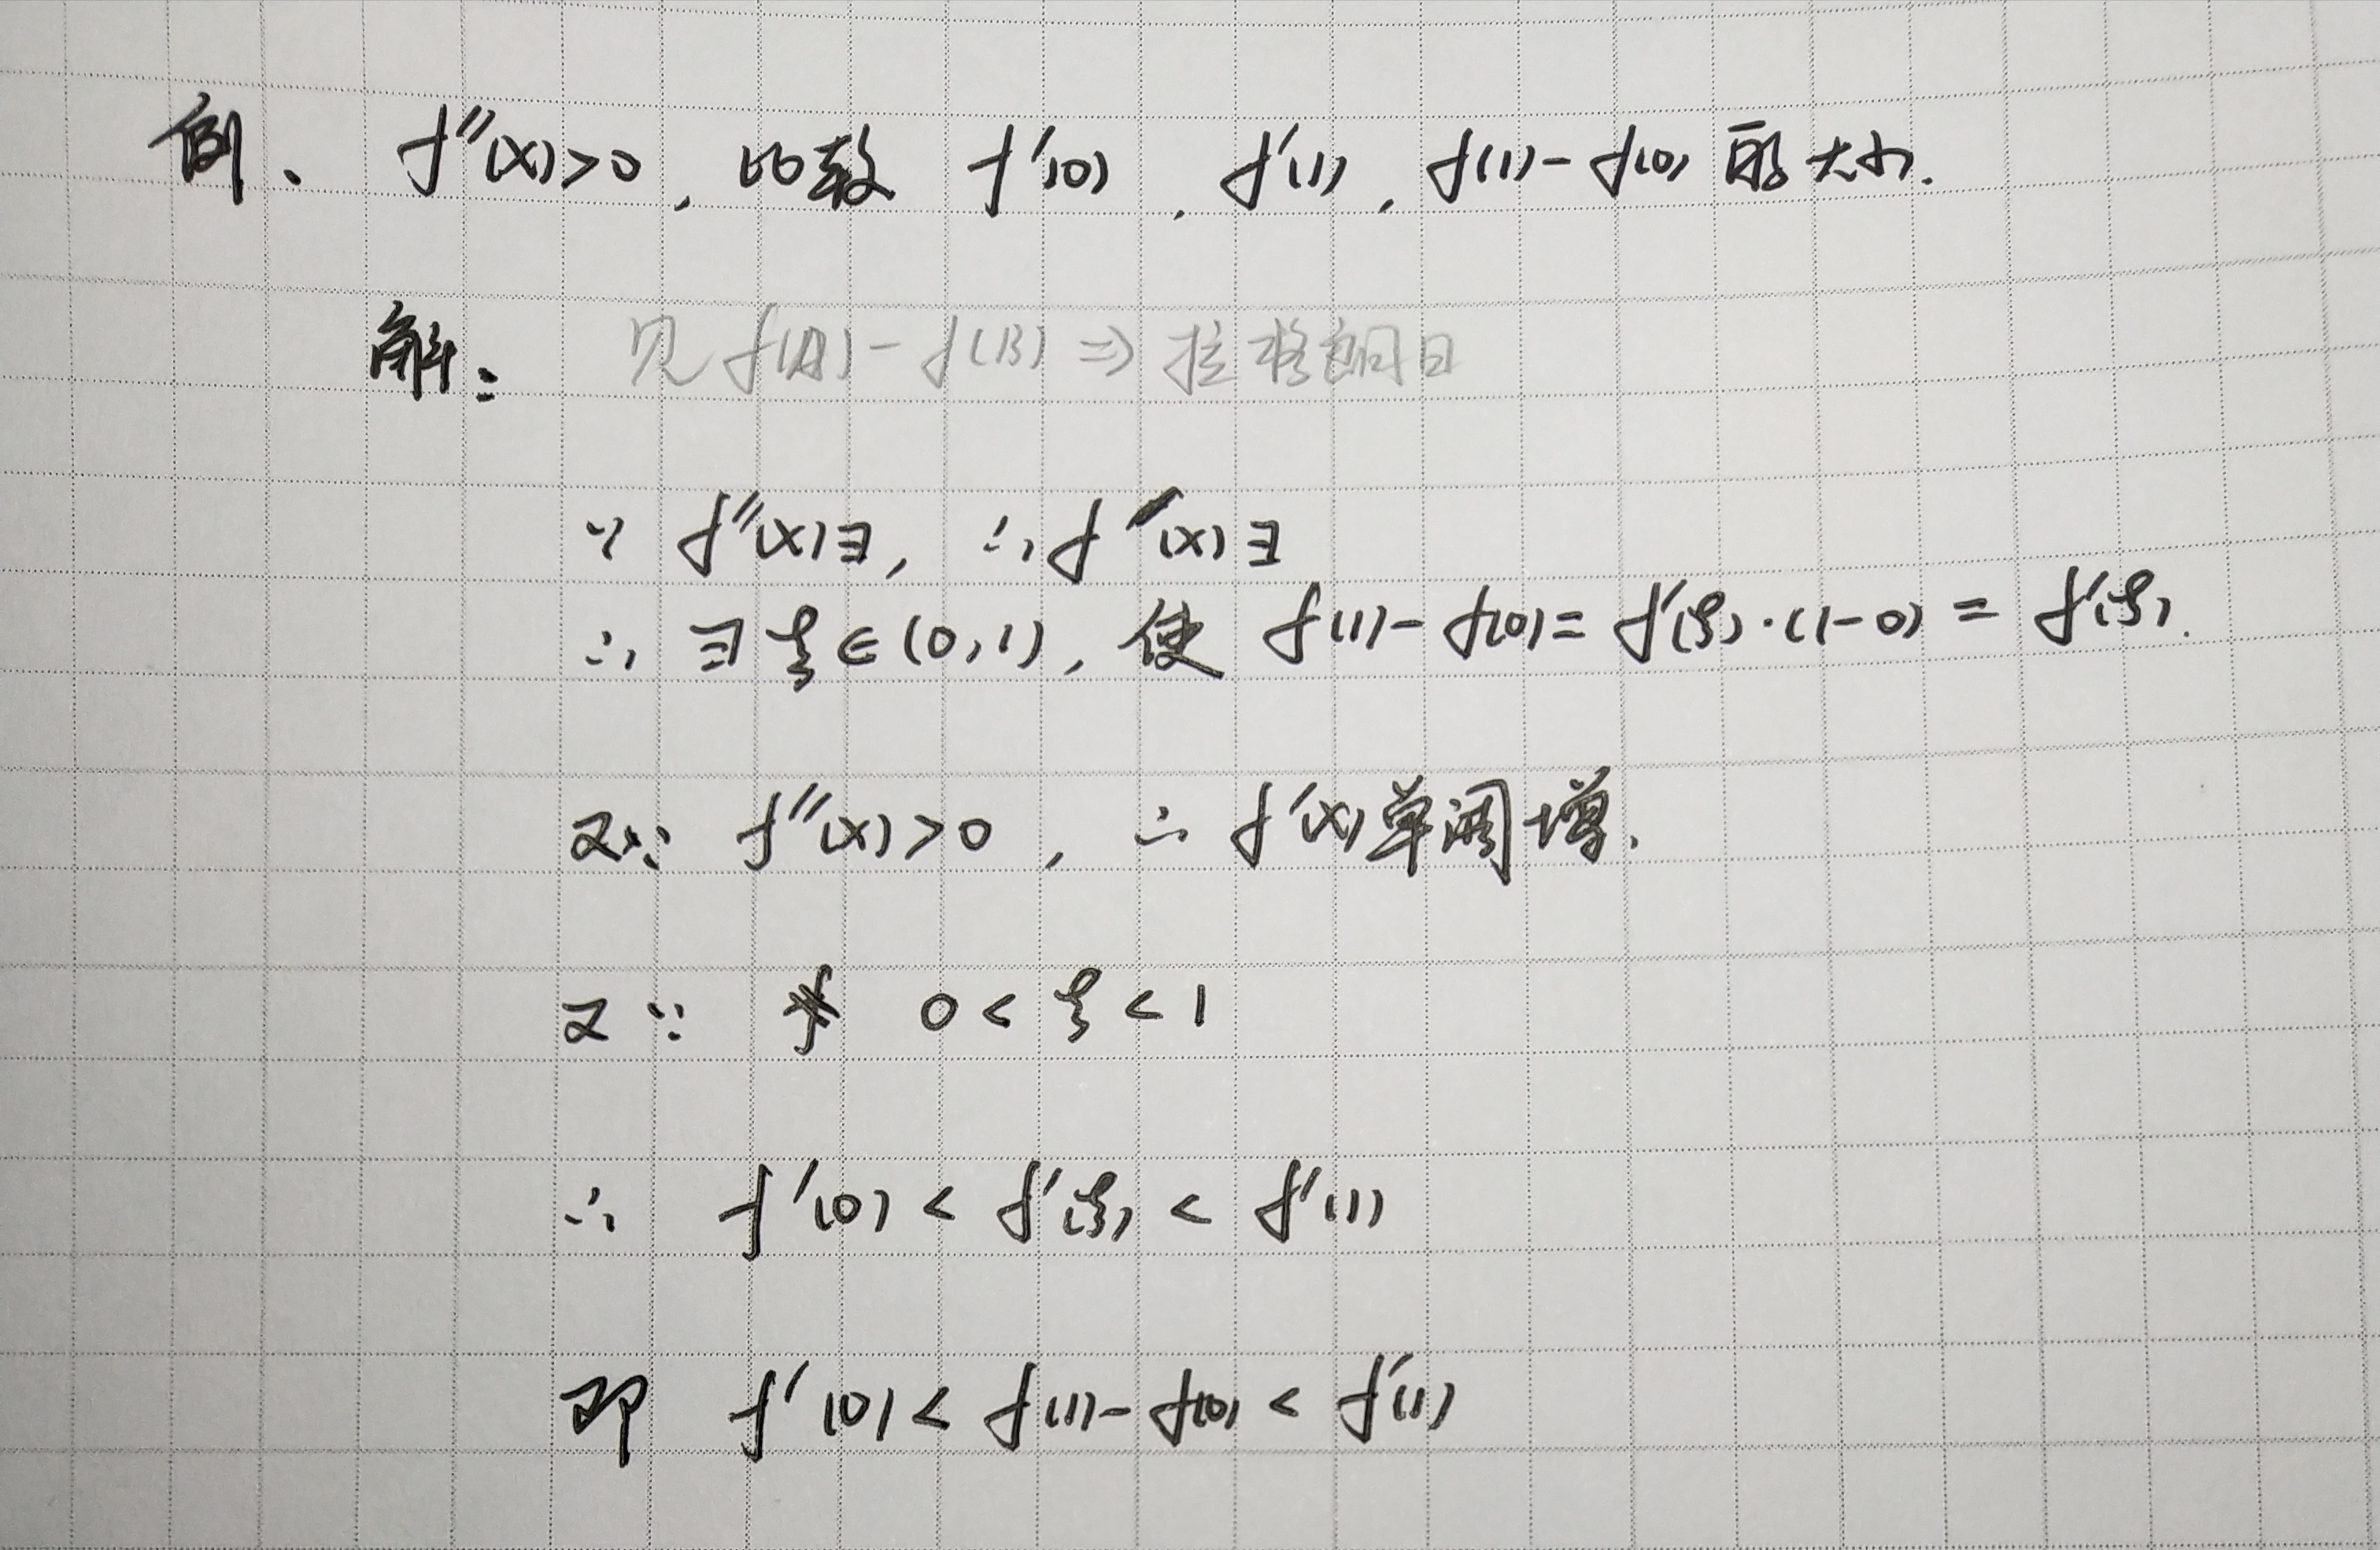 例、 f''(x)>0, 比较 f'(0), f'(1), f(1)-f(0) 的大小.
解: 见 f(A)-f(B) ⇒ 拉格朗日
∵ f''(x)∃, ∴ f'(x)∃
∴ ∃ξ∈(0,1), 使 f(1)-f(0)=f'(ξ)·(1-0)=f'(ξ).
又∵ f''(x)>0, ∴ f'(x)单调增.
又∵ 0<ξ<1
∴ f'(0)<f'(ξ)<f'(1)
即 f'(0)<f(1)-f(0)<f'(1)